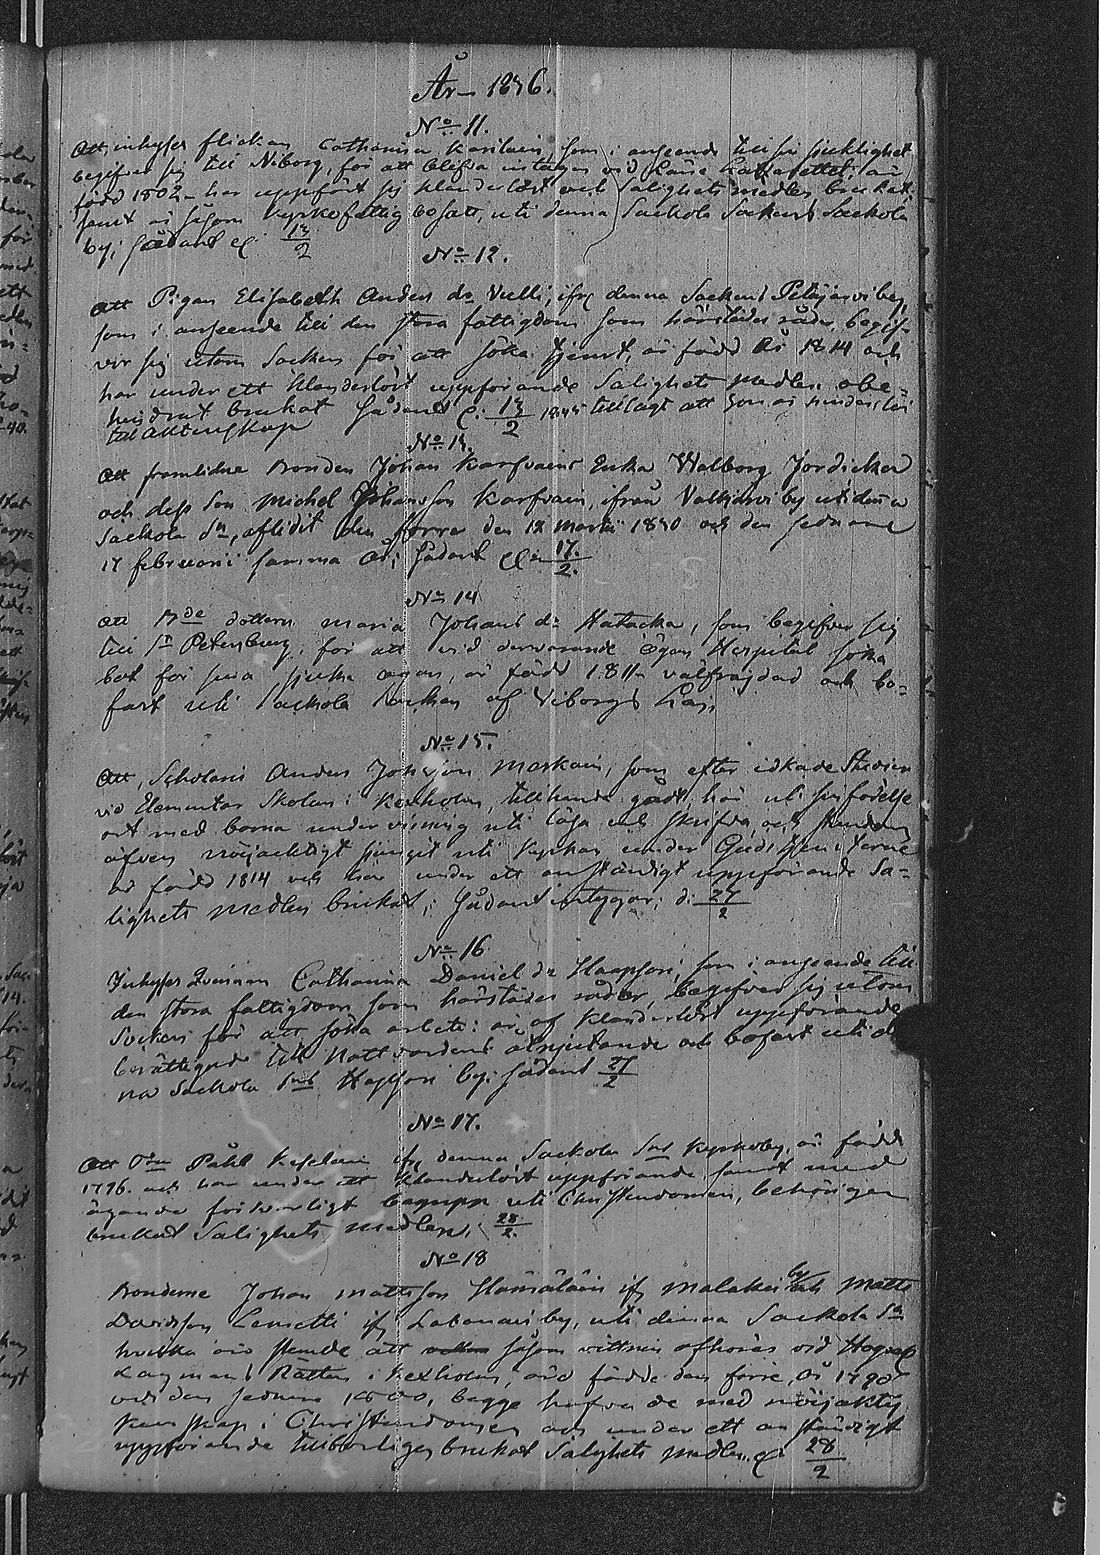 År 1836.
No 11.
Att inhyses flickan Catharina Karilain, som i anseende till sin sjuklighet
begifver sig till Wiborg, för att blifva intagen vid Läns Lazarettet, är
född 1802 har uppfört sig klanderlöst och Salighets medlen brukat
samt är såsom kyrkofattig bosatt, uti denna Sackola Sockens Sackola
by; sådant &c. 13/2
No 12.
Att Pigan Elisabeth Anders dr Vielli, ifr denna Sockens Petäjärvi by,
som i anseende till den stora fattigdom som härstädes råder, begif-
ver sig utom Socken för att söka tjenst, är född År 1814 och
har under ett klanderlöst uppförande Salighets medlen obe-
hindrat brukat Sådant &c. 13/2 tillagt att hon är hinderslös
till Äktenskap
No 13.
Att framlidne Bonden Johan Karfvains Enka Walborg Jordicker
och dess Son Michel Johansson Karfvain, ifrån Valkjärvi by uti denna
Sackola Sn, aflidit den förra den 12 Martii 1830 och den sednare
17 februarii samma År; Sådant &c. 17/2.
No 14
Att Bde dottern Maria Johans dr Hatacka, som begifver sig
till St Petersburg, för att vid dervarande Ögon Hospital söka
bot för sina sjuka ögon, är född 1811 välfrägdad och bo-
fast uti Sackola Socken af Viborgs Län,
No 15.
Att, Scholaris Anders Johsson Markain, som efter idkade Studier
vid Elementar Skolan i Kexholm, tillhanda gått, här uti sin födelse
ort med barna undervisning uti läsa och skrifva, och
äfven nöijachtigt sjungit uti kyrkan under Gudstjensterne
är född 1814 och har under ett anständigt uppförande Sa-
lighets medlen brukat; Sådant intygar; d. 27/2
No 16
Inhyses Qvinnan Catharina Daniel dr Haapsoi, som i anseende till
den stora fattigdom som härstädes råder, begifver sig utom
Socken för att söka arbete: är, af klanderlöst uppförande
berättigad till Nattvardens åtnjutande och bofast uti den-
na Sackola Sns Hapsoi by; Sådant 27/2
No 17.
Att Påhl Kiselain ifr denna Sackola Sns kyrkoby, är född
1796. och har under ett klanderlöst uppförande samt med
ägande försvarligt begrepp uti Christendomen, behörigen
brukat Salighets medlen, 28/2.
No 18
Bönderne Johan Mattsson Hämäläin ifr Malakoi by och Matts
Davidsson Lemetti ifr Labanais by, uti denna Sackola Sn
hvilka äro stemde att såsom vittnen afhöras vid
Lagmans Rätten i Kexholm, äro födde den förre År 1790
och den sednare 1800, begge hafva de med nöijaktig
kunskap i Christendomen och under ett anständigt
uppförande tillbörligen brukat Salighets medlen &c 28/2